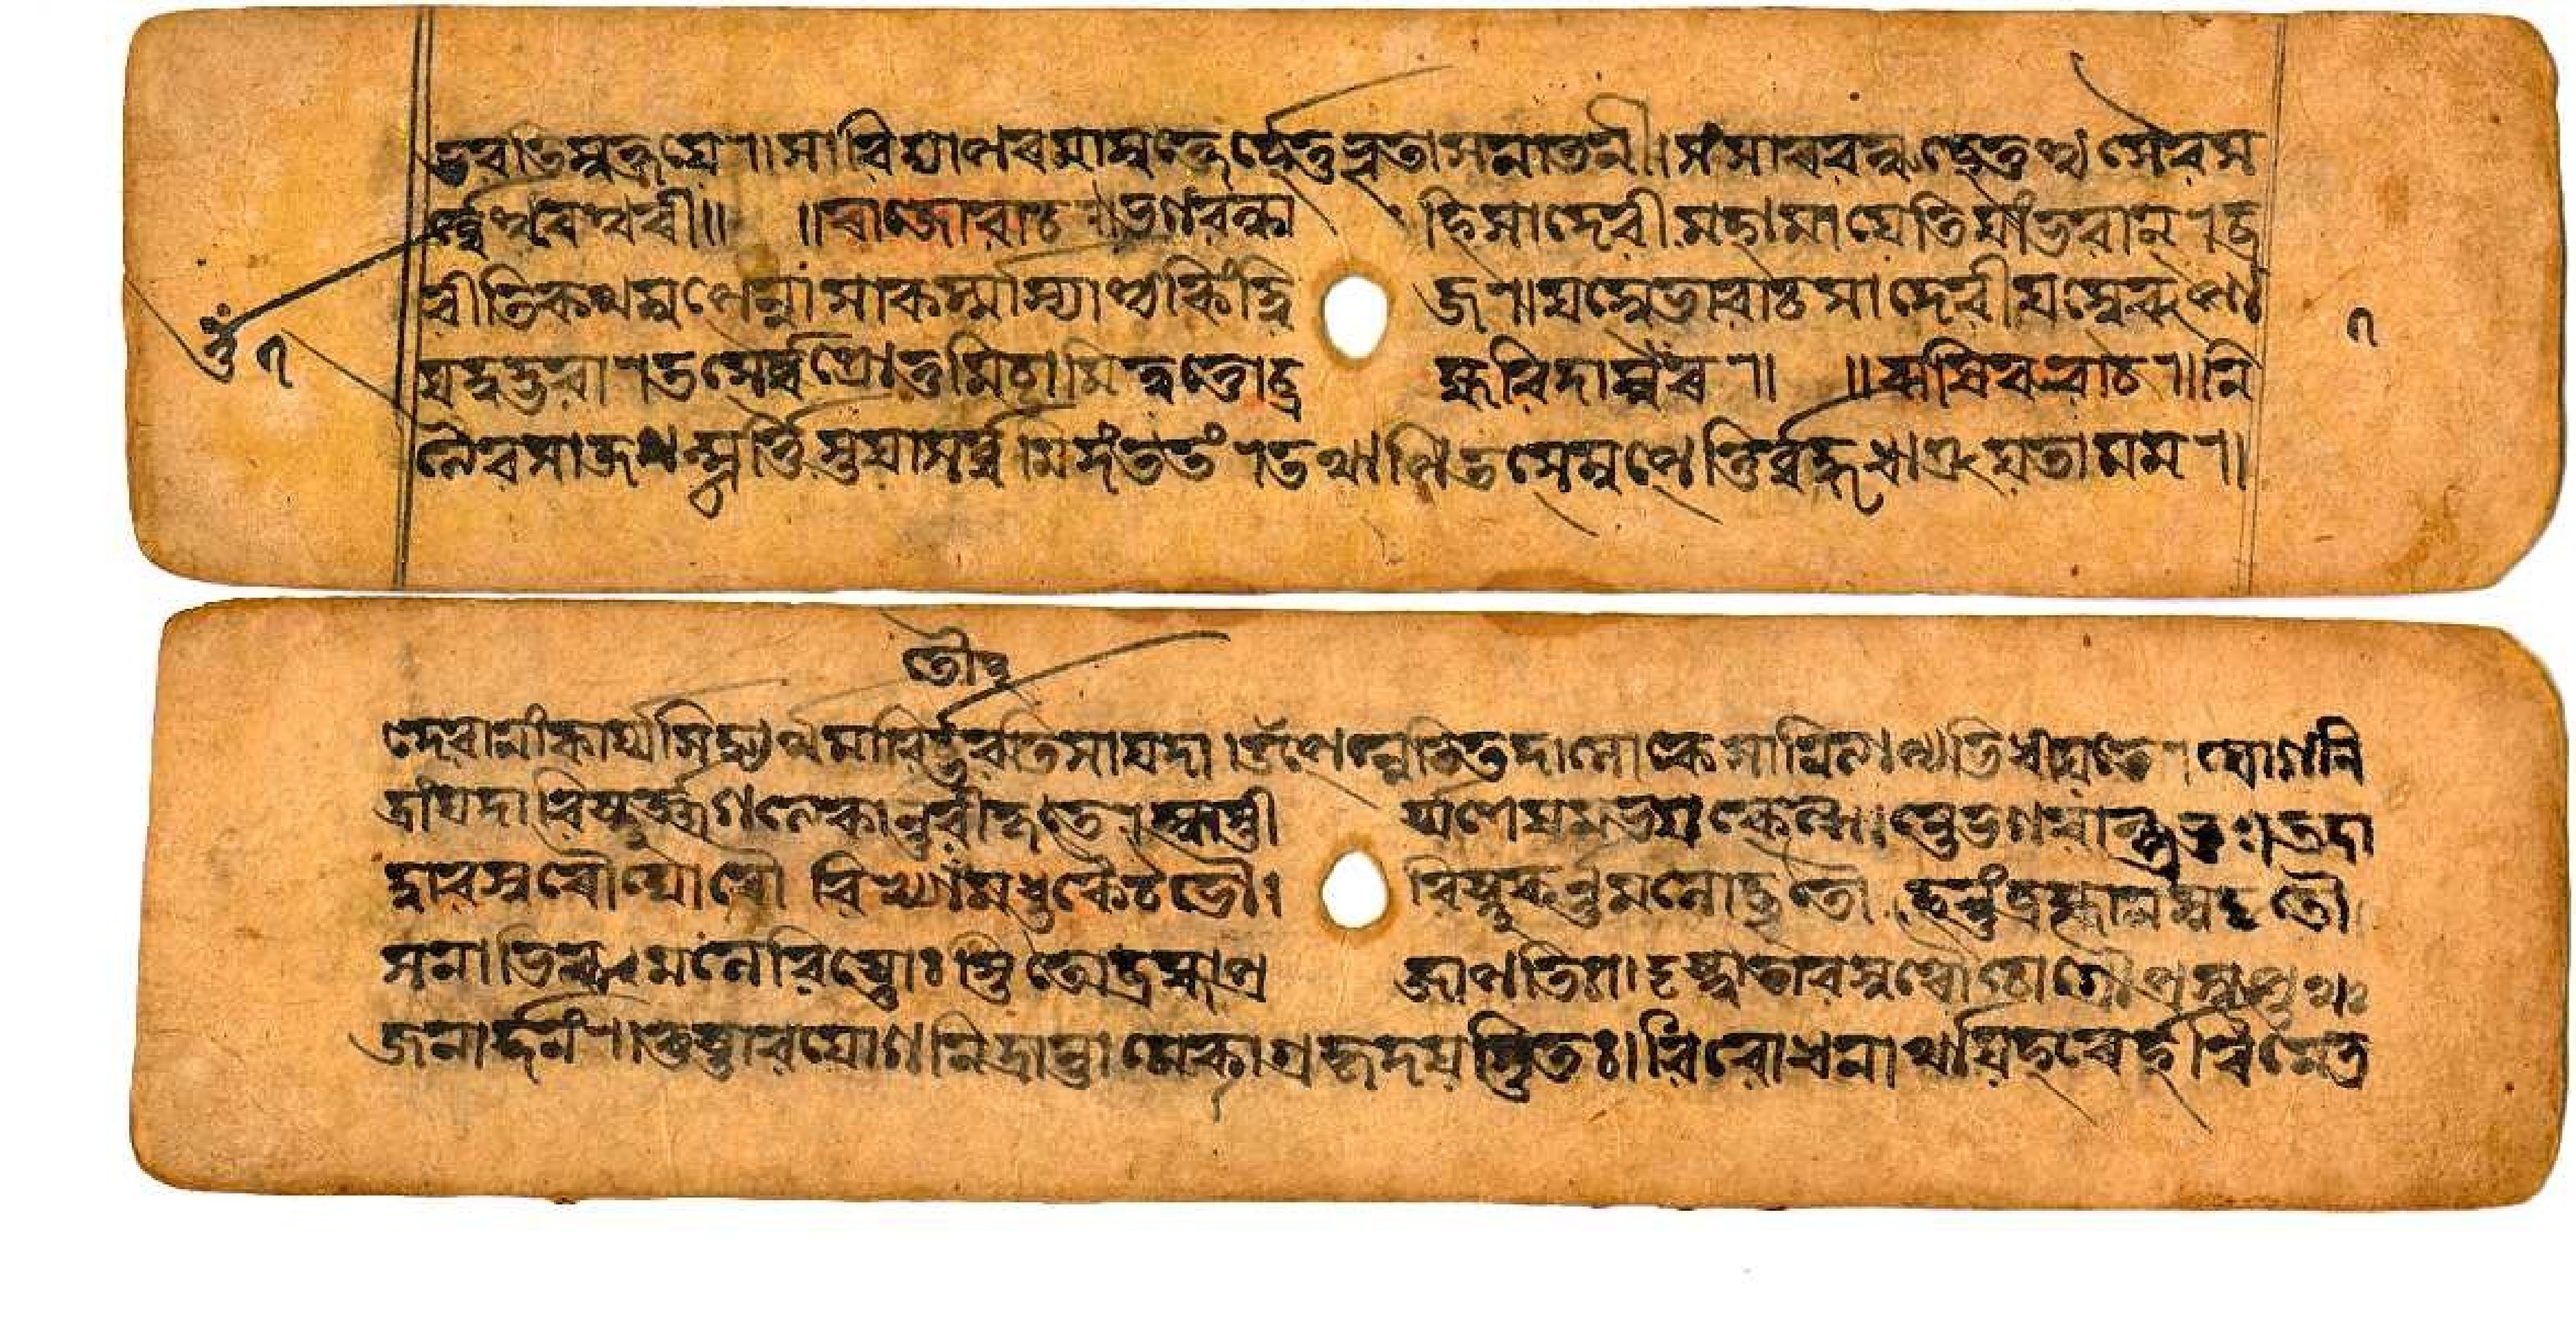 ভবতিমুক্তয়ে॥সাবিদ্যাপৰমামুক্তের্হেতুভূতাসনাতনী॥সংসাৰবন্ধহেতুশ্চসৈবস
র্ব্বেশ্বৰেশ্বৰী॥ ॥ৰাজোবাচ॥ভগবন্কা হিসাদেবীমহামায়েতিযাংভবান্।ব্র
বীতিকথমুৎপন্নাসাকর্ম্মাস্যাশ্চকিংদ্বি জ॥যৎস্বভাবাচসাদেবীযৎস্বৰূপা
যদুদ্ভবা।তৎসর্ব্বংশ্রোতুমিচ্ছামিত্বত্তোব্র হ্মবিদাম্বৰ॥ ॥ঋষিৰুবাচ॥নি
ত্যৈবসাজগন্মূর্ত্তিস্তয়াসর্ব্বমিদংততং।তথাপিতৎসমুৎপত্তির্ব্বহুধাশ্রূয়তাংমম॥
তৌ২
দেবানাংকার্য্যসিদ্ধ্যর্থমাবির্ভবতিসাযদা।উৎপন্নেতিতদালোকেসানিত্যাপ্যভিধীয়তে।যোগনি
দ্রাংযদাবিষ্ণুর্জ্জগত্যেকার্ণবীকৃতে।আস্তী র্য্যশেষমভজৎকল্পান্তেভগবান্প্রভুঃ।তদা
দ্বাবসুৰৌঘোৰৌবিখ্যাতৌমধুকৈটভৌ। বিষ্ণুকর্ণমলোদ্ভূতৌহন্তুংব্রহ্মাণমুদ্যতৌ
সনাভিকমলেবিষ্ণোঃস্থিতোব্রহ্মাপ্র জাপতিঃ।দৃষ্ট্বাতাবসুৰৌচোগ্রৌপ্রসুপ্তঞ্চ
জনার্দ্দনং॥তুষ্টাবযোগনিদ্রাংতামেকাগ্রহৃদয়স্থিতঃ।বিবোধনার্থায়হৰের্হৰিনেত্র